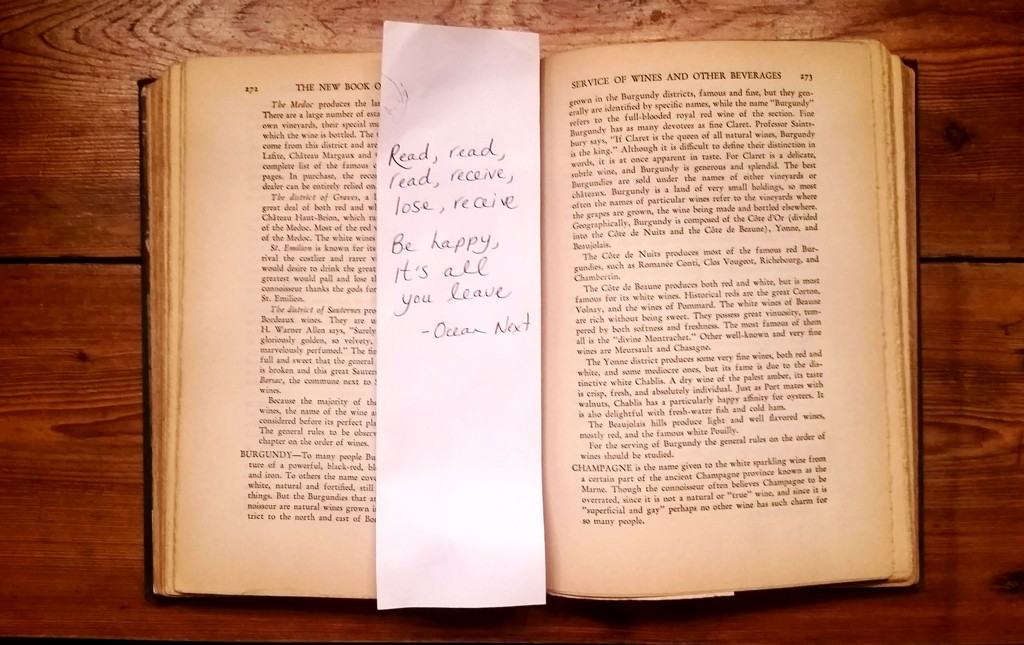 272 THE NEW BOOK O
The Medoc produces the la
There are a large number of esta
own vineyards, their special m
which the wine is bottled. The
come from this district and are
Lafite, Château Margaux and
complete list of the famous c
pages. In purchase, the reco
dealer can be entirely relied on
The district of Graves, a l
great deal of both red and wh
Château Haut-Brion, which ra
of the Medoc. Most of the red
of the Medoc. The white wines
St. Emilion is known for its
rival the costlier and rarer v
would desire to drink the great
greatest would pall and lose th
connoisseur thanks the gods for
St. Emilion.
The district of Sauternes pro
Bordeaux wines. They are u
H. Warner Allen says, "Surely
gloriously golden, so velvety,
marvelously perfumed." The fin
full and sweet that the general
is broken and this great Sauter
Barsac, the commune next to S
wines.
Because the majority of the
wines, the name of the wine a
considered before its perfect pla
The general rules to be observ
chapter on the order of wines.
BURGUNDY—To many people Bu
ture of a powerful, black-red, bl
and iron. To others the name cove
white, natural and fortified, still
things. But the Burgundies that ar
noisseur are natural wines grown i
trict to the north and east of Bor
Read, read,
read, receive,
lose, receive
Be happy,
it's all
you leave
-Ocean Next
SERVICE OF WINES AND OTHER BEVERAGES 273
grown in the Burgundy districts, famous and fine, but they gen-
erally are identified by specific names, while the name "Burgundy"
refers to the full-blooded royal red wine of the section. Fine
Burgundy has as many devotees as fine Claret. Professor Saints-
bury says, "If Claret is the queen of all natural wines, Burgundy
is the king." Although it is difficult to define their distinction in
words, it is at once apparent in taste. For Claret is a delicate,
subtle wine, and Burgundy is generous and splendid. The best
Burgundies are sold under the names of either vineyards or
châteaux. Burgundy is a land of very small holdings, so most
often the names of particular wines refer to the vineyards where
the grapes are grown, the wine being made and bottled elsewhere.
Geographically, Burgundy is composed of the Côte d'Or (divided
into the Côte de Nuits and the Côte de Beaune), Yonne, and
Beaujolais.
The Côte de Nuits produces most of the famous red Bur-
gundies, such as Romanée Conti, Clos Vougeot, Richebourg, and
Chambertin.
The Côte de Beaune produces both red and white, but is most
famous for its white wines. Historical reds are the great Corton,
Volnay, and the wines of Pommard. The white wines of Beaune
are rich without being sweet. They possess great vinuosity, tem-
pered by both softness and freshness. The most famous of them
all is the "divine Montrachet." Other well-known and very fine
wines are Meursault and Chasagne.
The Yonne district produces some very fine wines, both red and
white, and some mediocre ones, but its fame is due to the dis-
tinctive white Chablis. A dry wine of the palest amber, its taste
is crisp, fresh, and absolutely individual. Just as Port mates with
walnuts, Chablis has a particularly happy affinity for oysters. It
is also delightful with fresh-water fish and cold ham.
The Beaujolais hills produce light and well flavored wines,
mostly red, and the famous white Pouilly.
For the serving of Burgundy the general rules on the order of
wines should be studied.
CHAMPAGNE is the name given to the white sparkling wine from
a certain part of the ancient Champagne province known as the
Marne. Though the connoisseur often believes Champagne to be
overrated, since it is not a natural or "true" wine, and since it is
"superficial and gay" perhaps no other wine has such charm for
so many people.